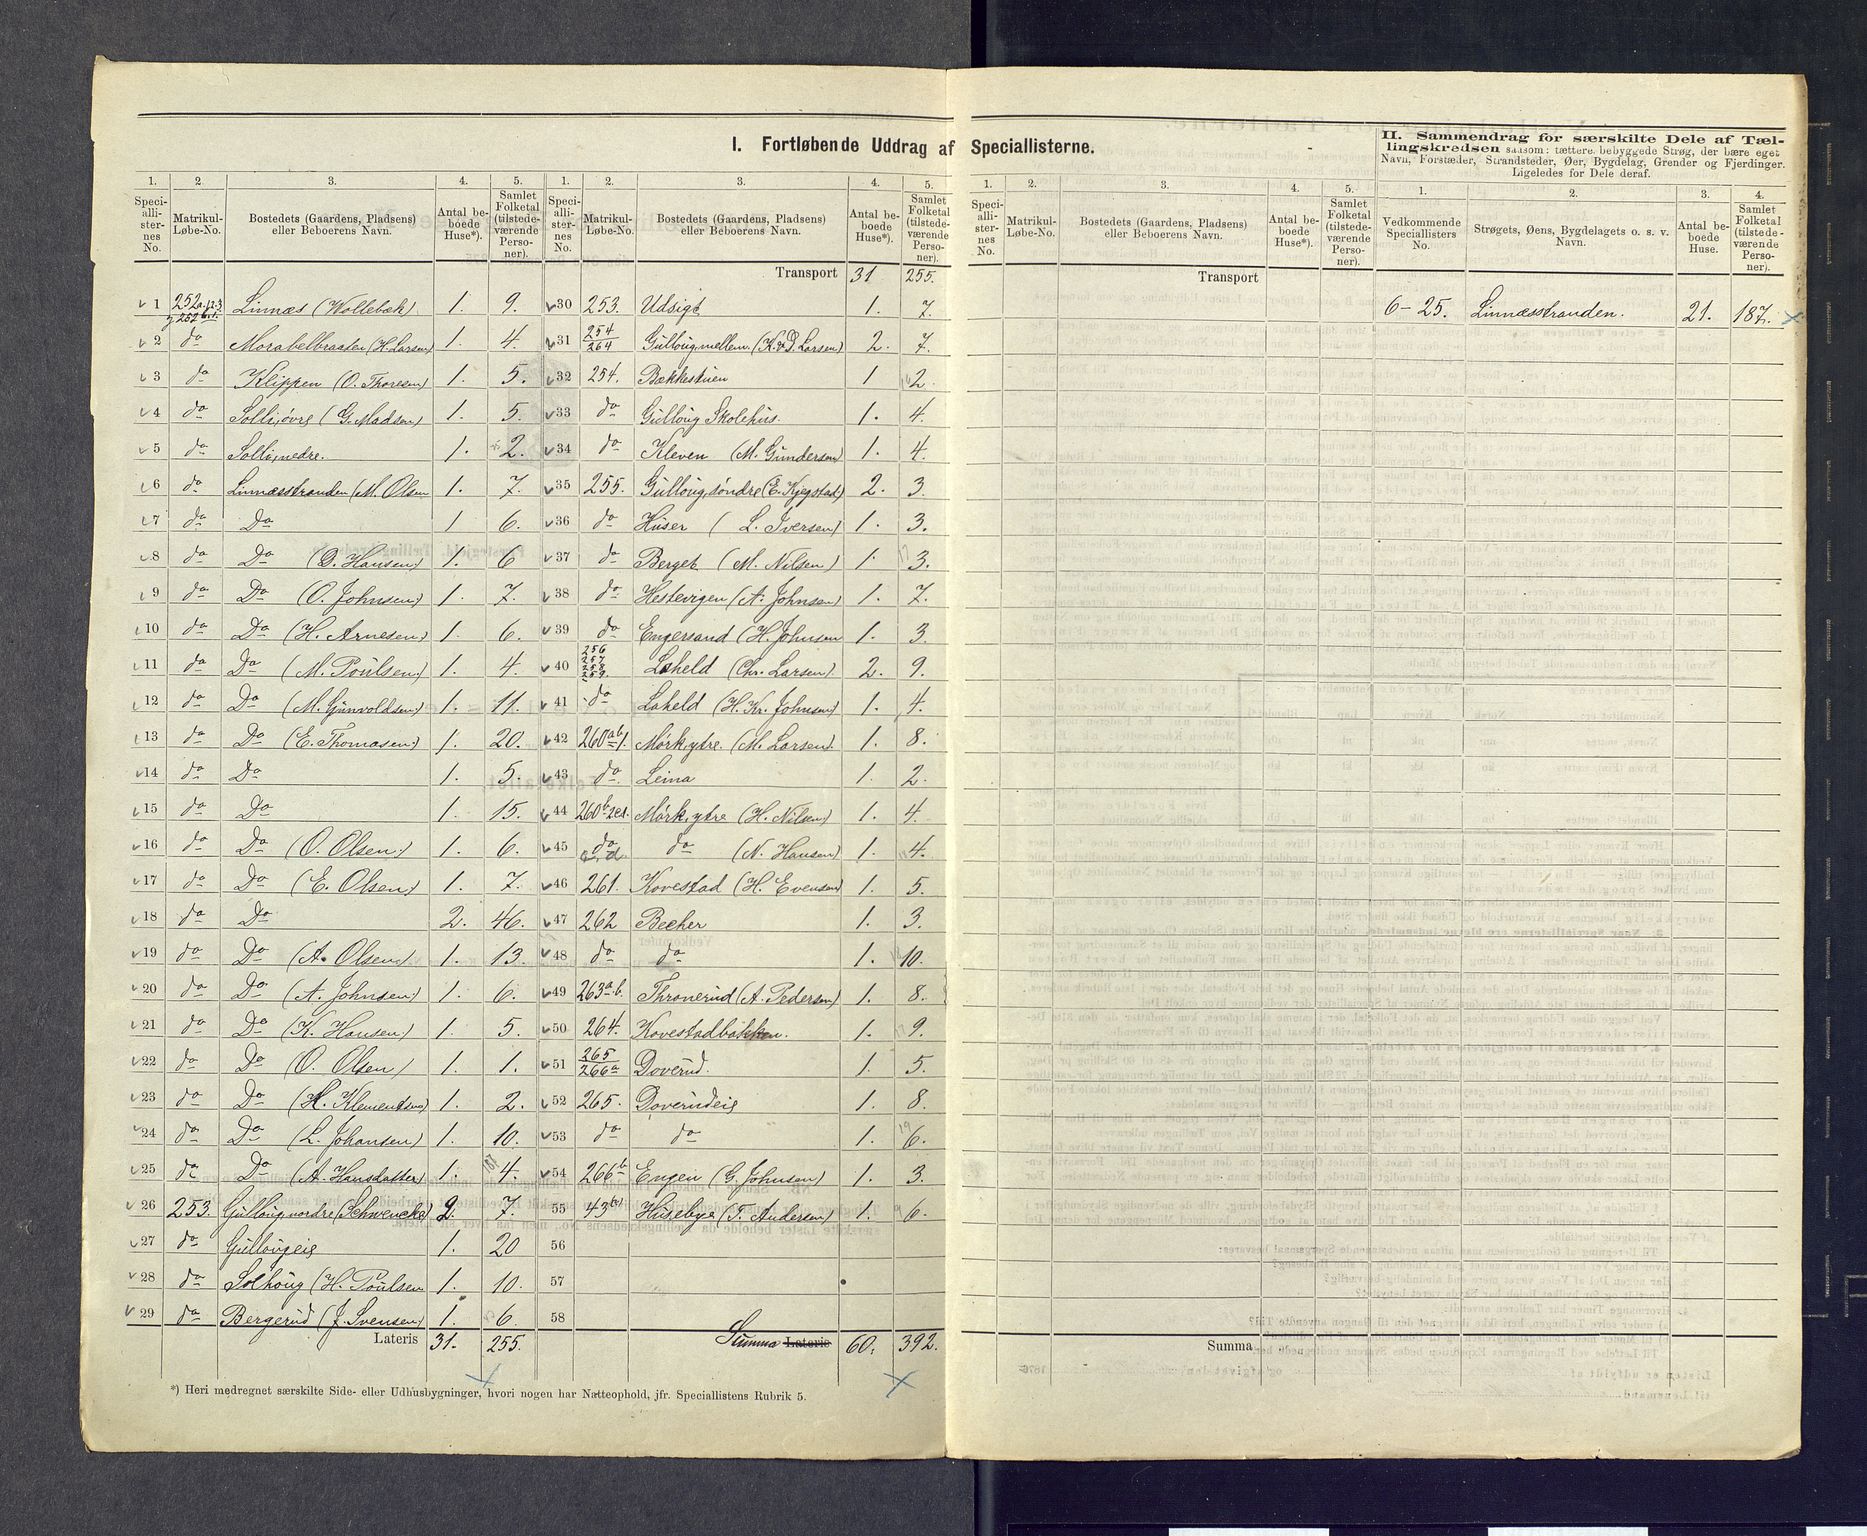 I. Fortløbende Uddrag af Speciallisterne.
II. Sammendrag for særskilte Dele af Tællingskredsen saasom: tættere bebyggede Strøg, der bære eget Navn, Forstæder, Strandsteder, Øer, Bygdelag, Grender og Fjerdinger. Ligeledes for Dele deraf.
1. 2. 3. 4. 5. 1. 2. 3. 4. 5. 1. 2. 3. 4. 5. 1. 2. 3. 4.
Speciallisternes No. Matrikul-Løbe-No. Bostedets (Gaardens, Pladsens) eller Beboerens Navn. Antal beboede Huse*). Samlet Folketal (tilstedeværende Personer).
Speciallisternes No. Matrikul-Løbe-No. Bostedets (Gaardens, Pladsens) eller Beboerens Navn. Antal beboede Huse*). Samlet Folketal (tilstedeværende Personer).
Speciallisternes No. Matrikul-Løbe-No. Bostedets (Gaardens, Pladsens) eller Beboerens Navn. Antal beboede Huse*). Samlet Folketal (tilstedeværende Personer).
Vedkommende Speciallisters No. Strøgets, Øens, Bygdelagets o. s. v. Navn. Antal beboede Huse. Samlet Folketal (tilstedeværende Personer).
Transport 31 255.
Transport
1 Linnæs (Wollebæk) 1. 9.
2 do Morabelbraaten (H. Larsen) 1. 4.
3 do Klippen (O. Thoresen) 1. 5.
4 do Solli, øvre (G. Madsen) 1. 5.
5 do Solli, nedre. 1. 2.
6 do Linnæsstranden (M. Olsen 1. 7.
7 do Do 1 6.
8 do Do (D. Hansen) 1. 6
9 do Do (O. Johnsen) 1. 7.
10 do Do (H. Arnesen) 1. 6.
11 do Do (M. Poulsen) 1. 4.
12 do Do (M. Gunvoldsen) 1. 11.
13 do Do (E. Thomasen) 1. 20.
14 do Do 1. 5.
15 do Do 1. 15.
16 do Do (O. Olsen) 1. 6.
17 do Do (E. Olsen) 1. 7.
18 do Do 2. 46.
19 do Do (A. Olsen) 1. 13.
20 do Do (A. Johnsen) 1. 6.
21 do Do (K. Hansen) 1. 5.
22 do Do (O. Olsen) 1. 1.
23 do Do (H. Klementsen) 1. 2.
24 do Do (L. Johansen) 1. 10.
25 do Do (A. Hansdatter) 1. 4.
26 253. Gulloug, nordre (Schwencke) 2. 7.
27 do Gullougeie 1. 20
28 do Solhoug (H. Poulsen 1. 10.
29 do Bergerud (J. Svensen) 1. 6.
Lateris 31. 255.
30 253. Udsigt 1. 7.
31 254 264 Gulloug, mellem. (K. & D. Larsen) 2. 7.
32 254. Bækkestuen 1 2.
33 do Gulloug Skolehus. 1. 4.
34 do Kleven (M. Gundersen) 1. 4.
35 255. Gulloug, søndre (E. Kjegstad) 2. 3.
36 do Huser (L. Iversen) 1. 3.
37 do Berget (M. Nilsen) 1. 3.
38 do Hestevigen (A. Johnsen) 1. 7.
39 do Engersand (H. Johnsen 1. 3.
40 256 257 258 259. Laheld (Chr. Larsen) 2. 9.
41 do Laheld (H. Kr. Johnsen) 1. 4.
42 260ab1. Mørk, ytre. (M. Larsen). 1. 8.
43 do Leina 1. 2.
44 Mørk, ytre (H. Nilsen) 1. 4.
45 do c. d. do (N. Hansen) 1. 4.
46 261. Kovestad (H. Evensen) 1. 5.
47 262 Becher 1. 3.
48 do do 1. 10.
49 263a.b. Thronerud (A. Pedersen) 1. 8.
50 264. Kovestadbakken. 1. 9.
51 265 266a Doverud. 1. 5.
52 265. Doverudeie 1. 8.
53 do do 1. 6.
54 266b Engen (G. Johnsen) 1. 3.
55 Husebye (T. Andersen) 1. 6.
56
57
58
Summa Lateris 60. 392.
6-25. Linnæsstranden. 21. 187.
Summa
*) Heri medregnet særskilte Side- eller Udhusbygninger, hvori nogen har Natteophold, jfr. Speciallistens Rubrik 5.